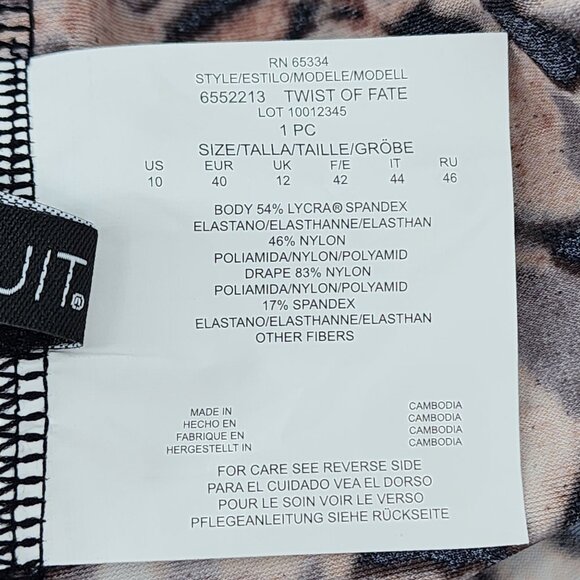 RN 65334
STYLE/ESTILO/MODELE/MODELL
6552213 TWIST OF FATE
LOT 10012345
1 PC
SIZE/TALLA/TAILLE/GRÖBE
US EUR UK F/E IT RU
10 40 12 42 44 46
BODY 54% LYCRA® SPANDEX
ELASTANO/ELASTHANNE/ELASTHAN
46% NYLON
POLIAMIDA/NYLON/POLYAMID
DRAPE 83% NYLON
POLIAMIDA/NYLON/POLYAMID
17% SPANDEX
ELASTANO/ELASTHANNE/ELASTHAN
OTHER FIBERS
UIT®
MADE IN CAMBODIA
HECHO EN CAMBODIA
FABRIQUE EN CAMBODIA
HERGESTELLT IN CAMBODIA
FOR CARE SEE REVERSE SIDE
PARA EL CUIDADO VEA EL DORSO
POUR LE SOIN VOIR LE VERSO
PFLEGEANLEITUNG SIEHE RÜCKSEITE